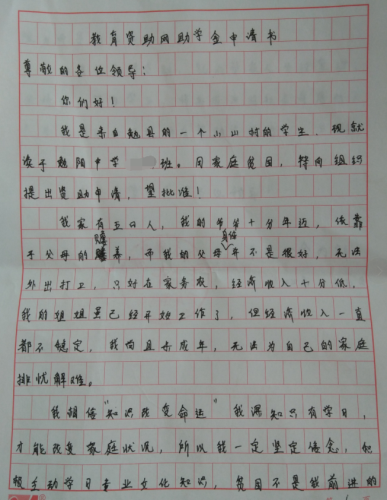 教育资助网助学金申请书
尊敬的各位领导:
你们好!
我是来自勉县的一个小山村的学生,现就
读于勉阳中学 班。因家庭贫困,特向组织
提出资助申请,望批准!
我家有五口人,我的爷爷十分年迈,依靠
于父母的赡养,而我的父母身体并不是很好,无法
外出打工,只好在家务农,经济收入十分低,
我的姐姐虽已经开始工作了,但经济收入一直
都不稳定,我尚且未成年,无法为自己的家庭
排忧解难。
我相信"知识改变命运"我深知只有学习,
才能改变家庭状况,所以我一定坚定信念,积
极主动学习专业文化知识,贫困不是我前进的